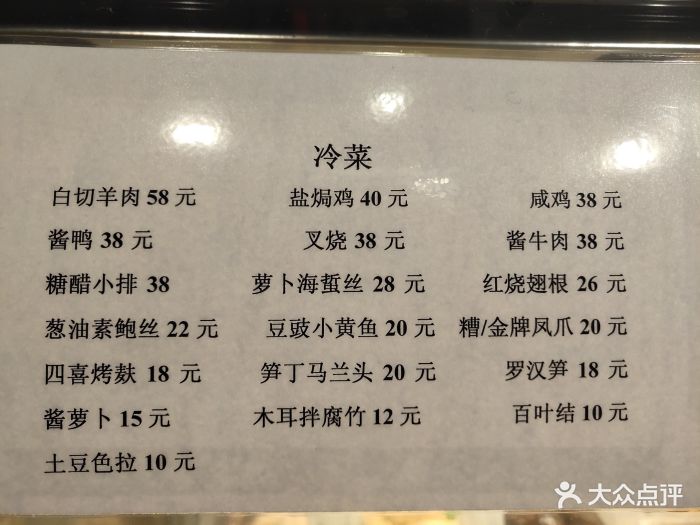 冷菜
白切羊肉 58 元 盐焗鸡 40 元 咸鸡 38 元
酱鸭 38 元 叉烧 38 元 酱牛肉 38 元
糖醋小排 38 萝卜海蜇丝 28 元 红烧翅根 26 元
葱油素鲍丝 22 元 豆豉小黄鱼 20 元 糟/金牌凤爪 20 元
四喜烤麸 18 元 笋丁马兰头 20 元 罗汉笋 18 元
酱萝卜 15 元 木耳拌腐竹 12 元 百叶结 10 元
土豆色拉 10 元
大众点评